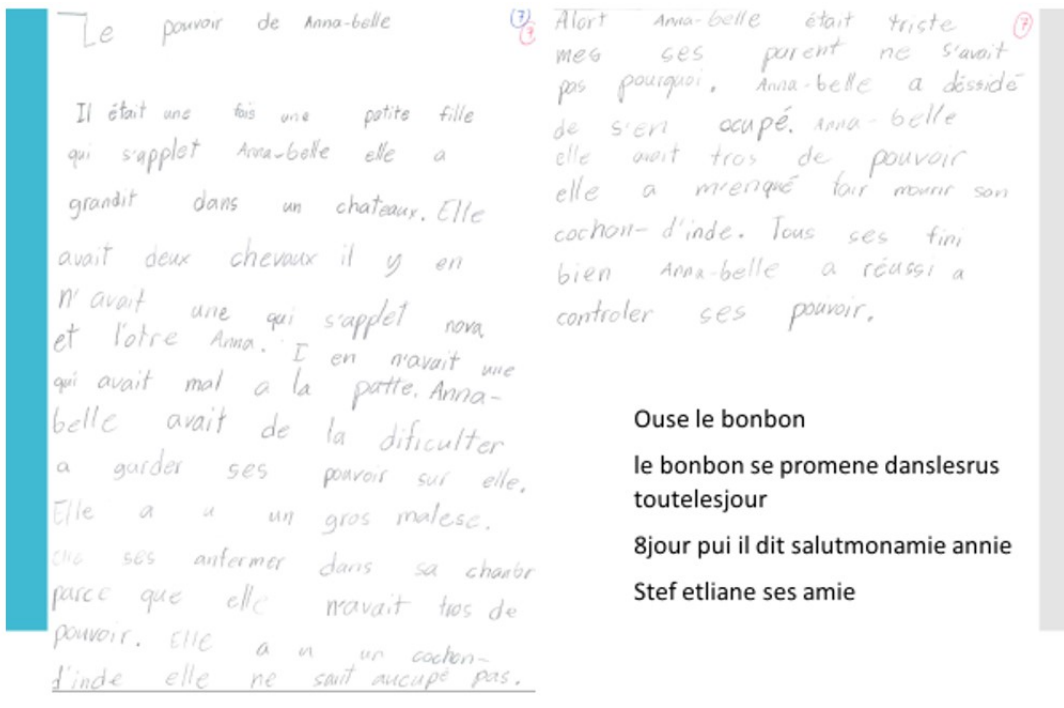 Le pouvoir de Anna-belle
7
7
Il était une fois une patite fille
qui s'applet Anna-belle elle a
grandit dans un chateaux. Elle
avait deux chevaux il y en
n'avait une qui s'applet nova
et l'otre Anna. I en n'avait une
qui avait mal a la patte. Anna-
belle avait de la dificulter
a garder ses pouvoir sur elle.
Elle a u un gros malesc.
elle ses anfermer dans sa chanbr
parce que elle n'avait tros de
pouvoir. Elle a u un cochon-
d'inde elle ne sait aucupé pas.
Alort Anna-belle était triste
7
mes ses parent ne s'avait
pas pourquoi. Anna-belle a déssidé
de s'en ocupé. Anna-belle
elle avait tros de pouvoir
elle a m'enqué fair mourir son
cochon-d'inde. Tous ses fini
bien Anna-belle a réussi a
controler ses pouvoir.
Ouse le bonbon
le bonbon se promene danslesrus
toutelesjour
8jour pui il dit salutmonamie annie
Stef etliane ses amie